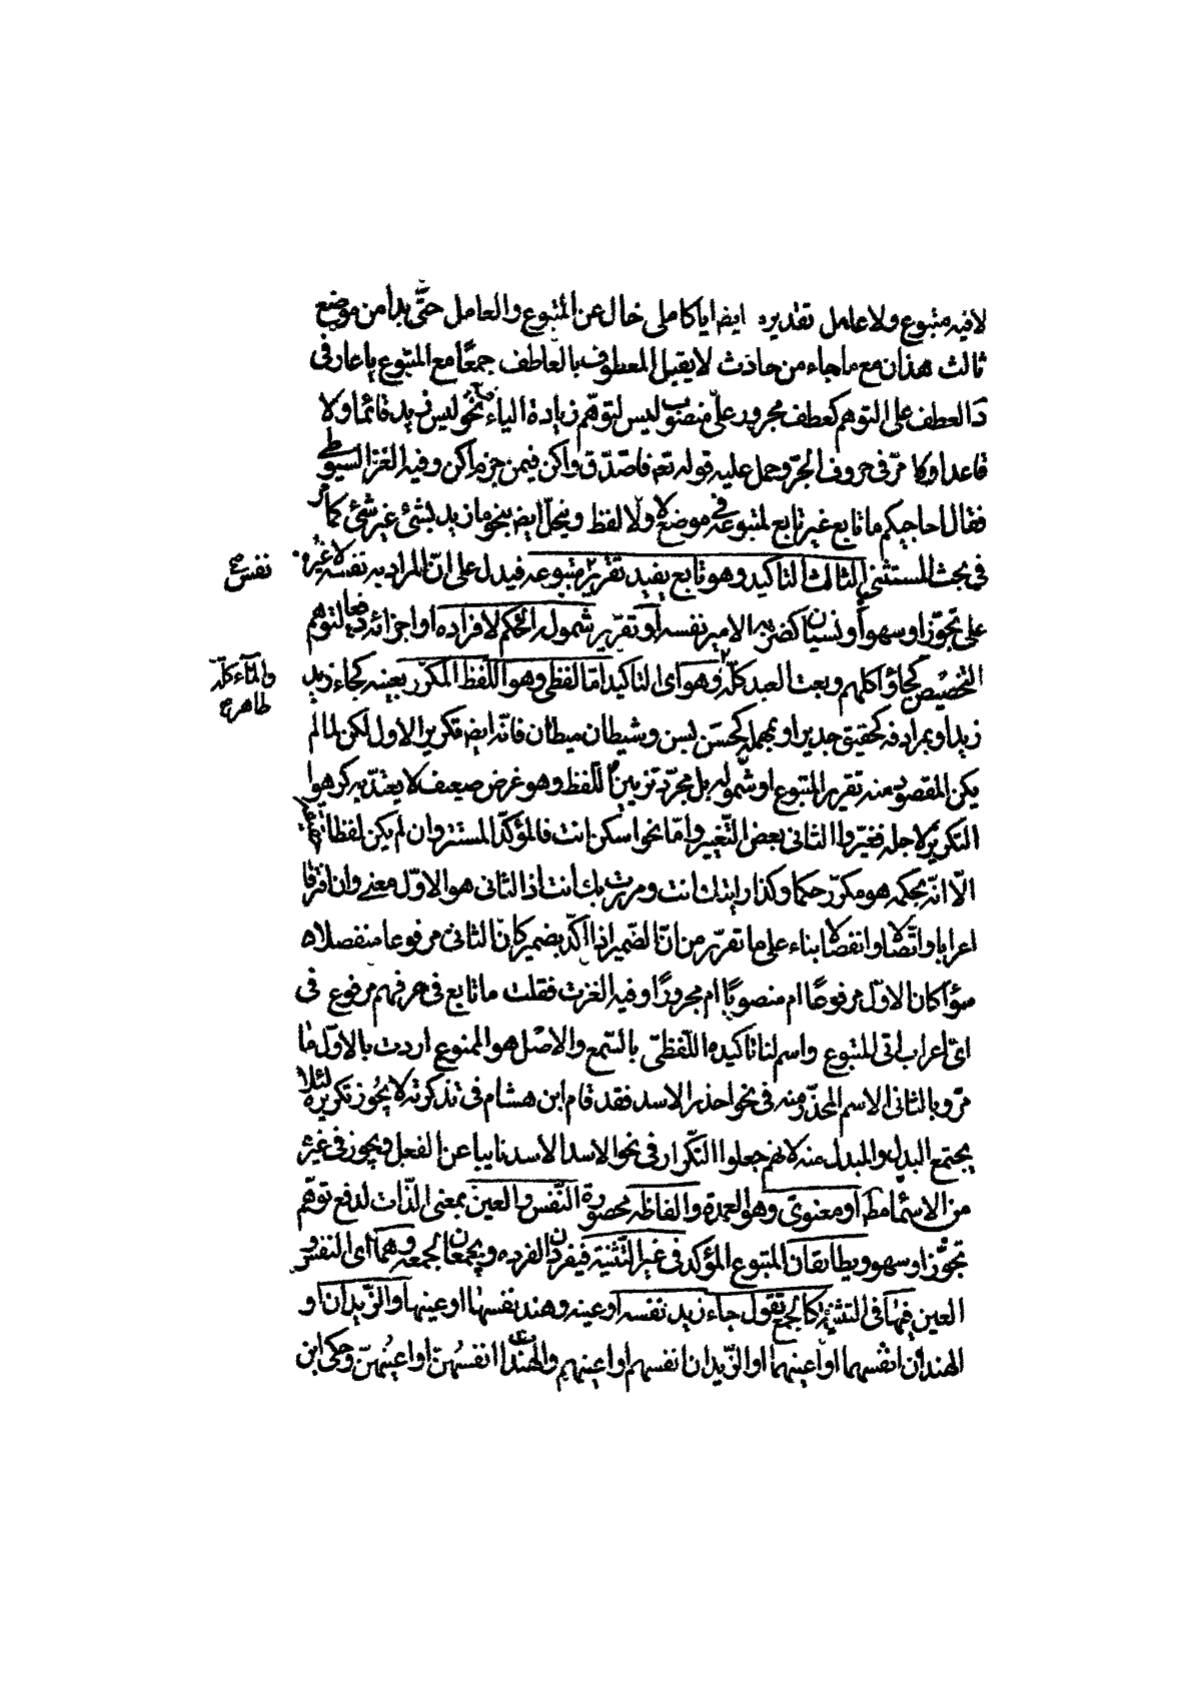 لا فيه متبوع ولا عامل تقديره ايض اياكاملى خال عن المتبوع والعامل حتّى بدا من موضع
ثالث هذان مع ما جاء من حاذث لا يقبل المعطوف بالعاطف جمعًا مع المتبوع ياعارفى
ذ العطف على التوهم كعطف مجرور على منصوب ليس لتوهّم زيادة الياء نحو ليس زيد قائما ولا
قاعد او كما مرّ فى حروف الجرّ وحمل عليه قوله تعه فاصّدّق واكن فيمن جزم اكن وفيه الغز السيوطى
فقال احاجيكم ما تابع غير تابع لمتبوعه فى موضع لا ولا لفظ وينحلّ ايض بنحو ما زيد بشئ غير شئ كما مرّ
فى بحث المستثنى الثالث التاكيد وهو تابع يفيد تقرير متبوعه فيدل على انّ المراد به نفسه لا غيره
على تجوّز او سهو او نسيان كضربه الامير نفسه او تقرير شمول الحكم لافراده او اجزائه دفعا لتوهم
التخصيص كجاؤا كلهم وبعت العبد كلّه وهو اى التاكيد امّا لفظى وهو اللفظ المكرّر بعينه كجاء زيد
زيد او بمرادفه كحقيق جدير او بمهمله كحسن بسن وشيطان ميطان فانّه ايض تكرير الاول لكن لما لم
يكن المقصود منه تقرير المتبوع او شموله بل مجرّد تزيين اللفظ وهو غرض ضعيف لا يعتدّ به كرهوا
التكرير لاجله فغيّروا الثانى بعض التّغيير وامّا نحو اسكن انت فالمؤكّد المستتر وان لم يكن لفظا
الّا انّه بحكمه هو مكرّر حكما وكذا رايتك انت ومررت بك انت اذ الثانى هو الاوّل معنى وان افترقا
اعرابا واتّصالا وانفصالا بناء على ما تقرّر من انّ الضمير اذا اكّد بضمير كان الثانى مرفوعا منفصلا
سواء كان الاوّل مرفوعًا ام منصوبًا ام مجرورًا وفيه الغزت فقلت ما تابع فى عرفهم مرفوع فى
اىّ اعراب اتى للمتبوع واسم لنا تاكيده اللّفظىّ بالسّمع والاصل هو الممنوع اردت بالاوّل ما
مرّ وبالثانى الاسم المحذّر منه فى نحو احذر الاسد فقد قام ابن هشام فى تذكرته لا يجوز تكريره لئلا
يجتمع البدل والمبدل منه لانهم جعلوا التكرار فى نحو الاسد الاسد نايبا عن الفعل ويجوز فى غيره
من الاسماء مط او معنوى وهو العمدة والفاظه محصورة النّفس والعين بمعنى الذّات لدفع توهّم
تجوّز او سهو ويطابقان المتبوع المؤكد فى غير التّثنية فيفردان لفرده ويجمعان لجمعه وهما اى النفس و
العين فيها فى التثنية كالجمع تقول جاء زيد نفسه او عينه وهند نفسها او عينها والزّيدان او
الهندان انفسهما او اعينهما او الزّيدان انفسهم او اعينهم والهندات انفسهنّ او اعينهنّ وحكى ابن
نفس
والماء كلّه
طاهر